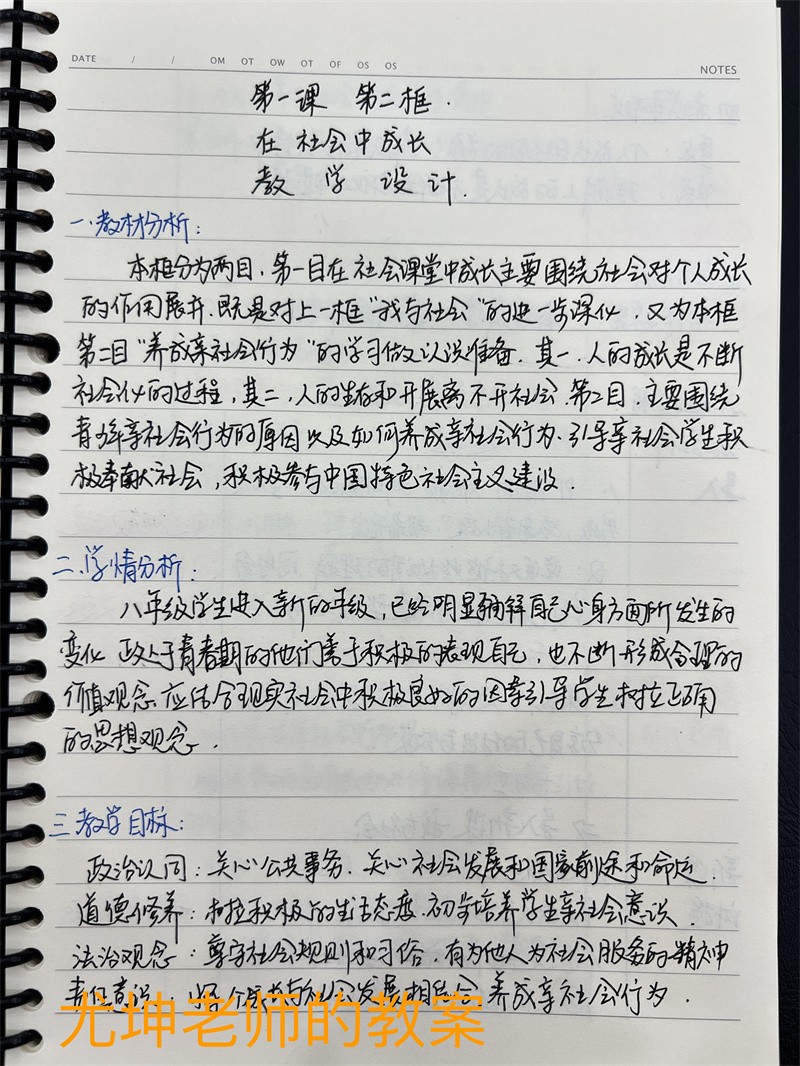 DATE / / OM OT OW OT OF OS OS
NOTES
第一课 第二框.
在社会中成长
教学设计.
一.教材分析:
本框分为两目,第一目在社会课堂中成长主要围绕社会对个人成长
的作用展开.既是对上一框“我与社会”的进一步深化,又为本框
第二目“养成亲社会行为”的学习做认识准备.其一,人的成长是不断
社会化的过程,其二,人的生存和开展离不开社会.第二目,主要围绕
青少年亲社会行为的原因以及如何养成亲社会行为.引导亲社会学生积
极奉献社会,积极参与中国特色社会主义建设.
二.学情分析:
八年级学生进入新的年级,已经明显了解自己心身方面所发生的
变化.正处于青春期的他们善于积极的表现自己,也不断形成合理的
价值观念.应结合现实社会中积极良好的因素引导学生树立正确
的思想观念.
三.教学目标:
政治认同:关心公共事务.关心社会发展和国家前途和命运.
道德修养:树立积极的生活态度.初步培养学生亲社会意识.
法治观念:尊守社会规则和习俗,有为他人为社会服务的精神
责任意识:将个人与社会发展相结合 养成亲社会行为.
尤坤老师的教案